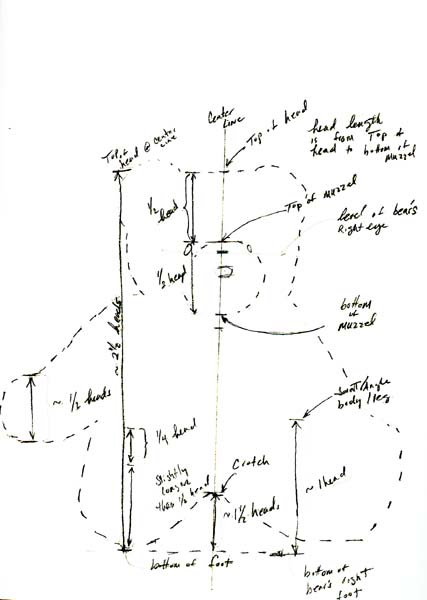 Center
Line
Top of head
head length
is from Top of
head to bottom of
muzzel
Top of
head @ center
line
1/2
head
Top of muzzel
level of bear's
Right eye
1/2 head
bottom
of
muzzel
~ 2 1/2 heads
~ 1/2 heads
1/4 head
body/leg
Slightly
longer
than 1/2 head
Crotch
~ 1 head
~ 1 1/2 heads
bottom of foot
bottom of
bear's right
foot